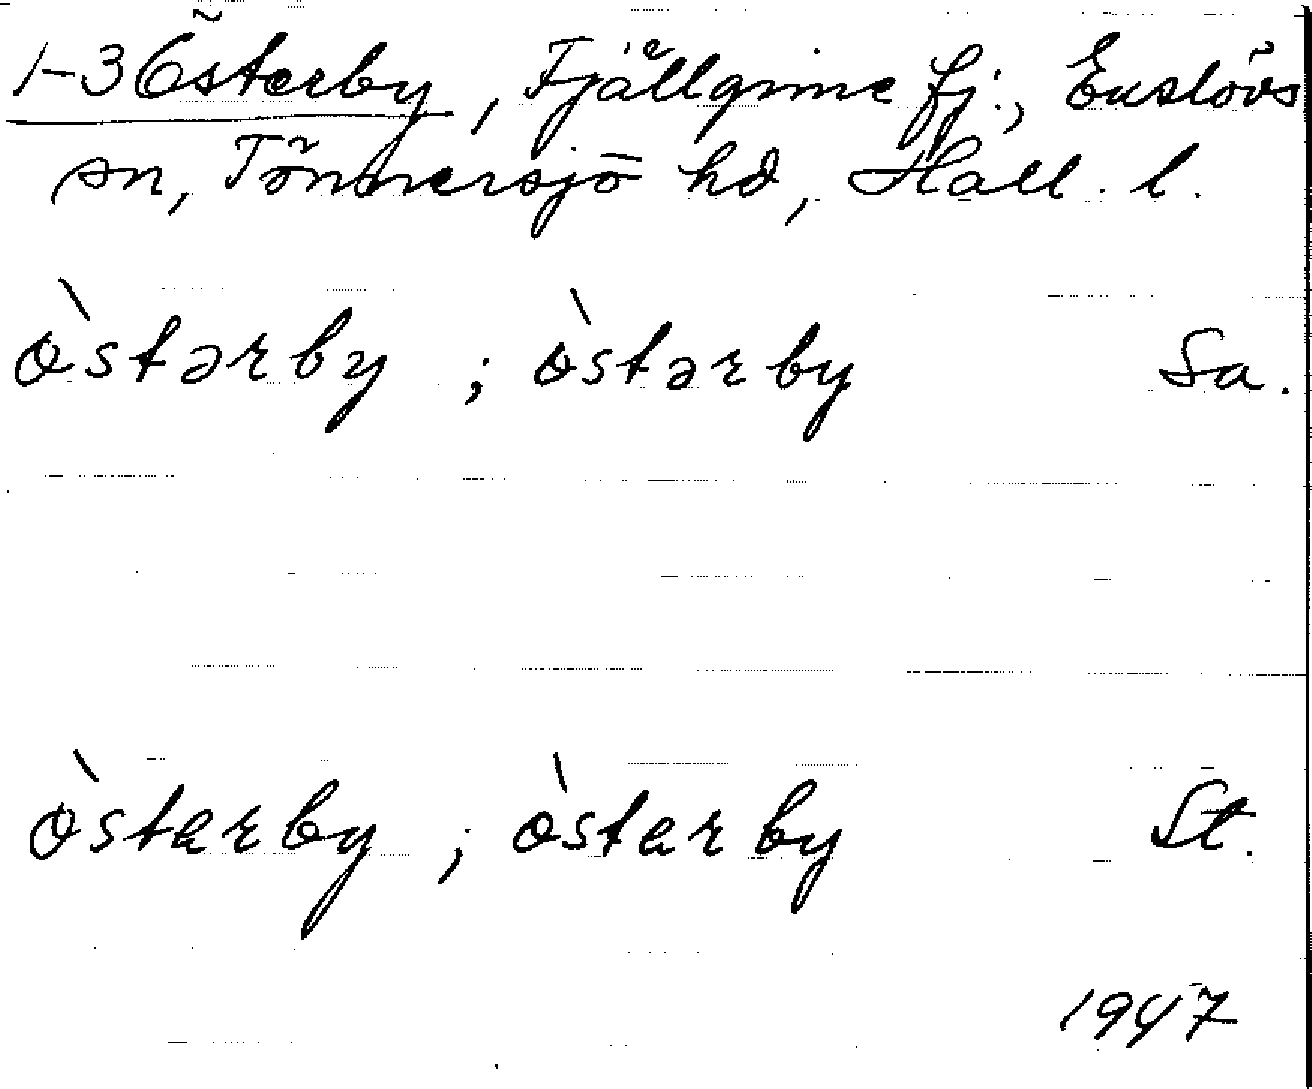 1-3 Österby, Fjällgine fj., Enslövs
sn, Tönnersjö hd, Hall. l.
ò̀stərby ; ò̀stərby Sa.
ò̀starby ; ò̀starby St.
1947